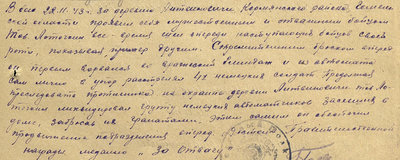 В бою 28.11.43. за деревню Литвиновичи Кормянского района, Гомельской
области проявил себя мужественным и отважным бойцом
Тов. все время шел впереди наступающих бойцов своей
роты, показывая пример другим. Стремительным броском вперед
он первым ворвался во вражеский и из автомата
сам лично в упор расстрелял 4х немецких солдат. Продолжая
преследовать противника на окраине деревни Литвиновичи тов.
ликвидировал группу немецких автоматчиков засевших в
доме, забросав их гранатами. Этим самым он обеспечил
продвижение подразделения вперед. Правительственной
награды медалью "За Отвагу"